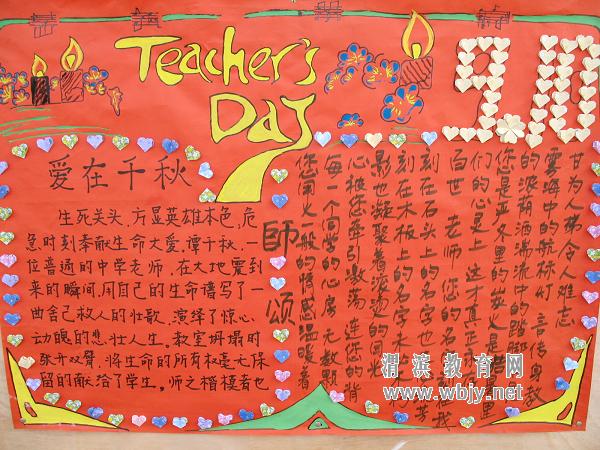 Teacher's
Day
9.10
爱在千秋
生死关头,方显英雄本色,危
急时刻奉献生命大爱,谭千秋,一
位普通的中学老师,在大地震到
来的瞬间,用自己的生命谱写了一
曲舍己救人的壮歌,演绎了惊心
动魄的悲壮人生。教室坍塌时
张开双臂,将生命的所有权毫无保
留的献给了学生。师之楷模者也
師頌
您用火一般的情感温暖着
每一个同学的心房 无数颗
心被您牵引激荡 连您的背
影也凝聚着滚烫的回忆
刻在木板上的名字未
刻在石头上的名字也 芳
百世 老师 您的名 刻在我
们的心 上 这才真正
您是严冬里的炭火 是酷暑里
的 荫洒湍流中的踏脚
海中的航标灯 言传身教
甘为人梯令人难忘
渭滨教育网
www.wbjy.net